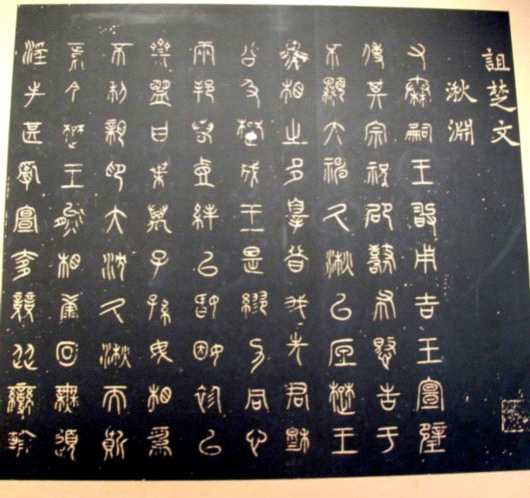 詛楚文
湫淵
又秦嗣王敢用吉玉宣璧
使其宗祝邵鼛布憝告于
不顯大沈久湫以底楚王
熊相之多辠昔我先君穆
公及楚成王是繆力同心
兩邦若壹絆以婚姻袗以
齊盟曰枼萬子孫毋相為
不利親卬大沈久湫而質
焉今楚王熊相康回無道
淫失甚亂宣侈競從變輸